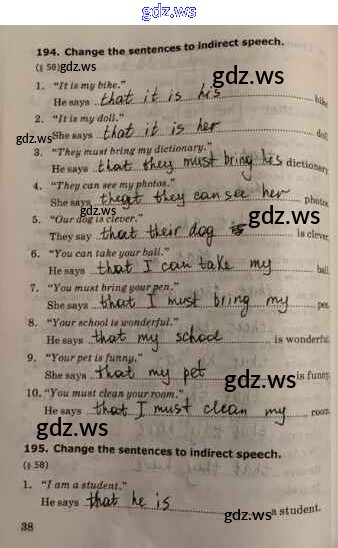 gdz.ws
194. Change the sentences to indirect speech.
(§ 58) gdz.ws
gdz.ws
1. "It is my bike."
He says that it is his bike.
2. "It is my doll."
She says that it is her doll.
gdz.ws
3. "They must bring my dictionary."
He says that they must bring his dictionary.
4. "They can see my photos."
She says that they can see her photos.
gdz.ws
5. "Our dog is clever."
gdz.ws
They say that their dog is clever.
6. "You can take your ball."
He says that I can take my ball.
gdz.ws
7. "You must bring your pen."
She says that I must bring my pen.
8. "Your school is wonderful."
He says that my school is wonderful.
9. "Your pet is funny."
She says that my pet is funny.
gdz.ws
10. "You must clean your room."
He says that I must clean my room.
gdz.ws
gdz.ws
195. Change the sentences to indirect speech.
(§ 58)
1. "I am a student."
He says that he is a student.
gdz.ws
38
gdz.ws